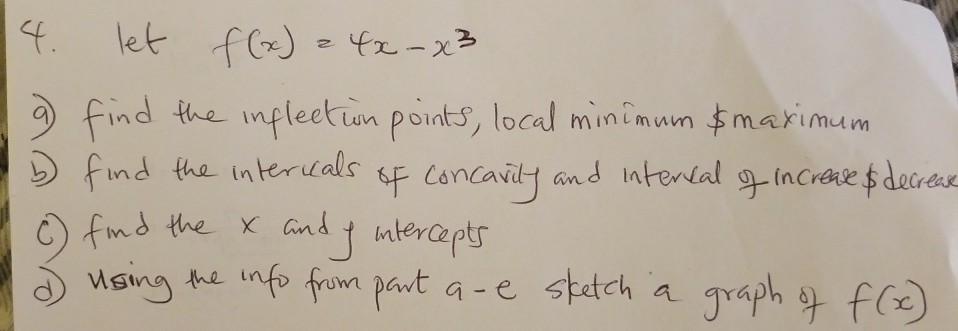 4. let f(x) = 4x - x³
a) find the inflection points, local minimum & maximum
b) find the intervals of concavity and interval of increase & decrease
c) find the x and y intercepts
d) Using the info from part a-e sketch a graph of f(x)